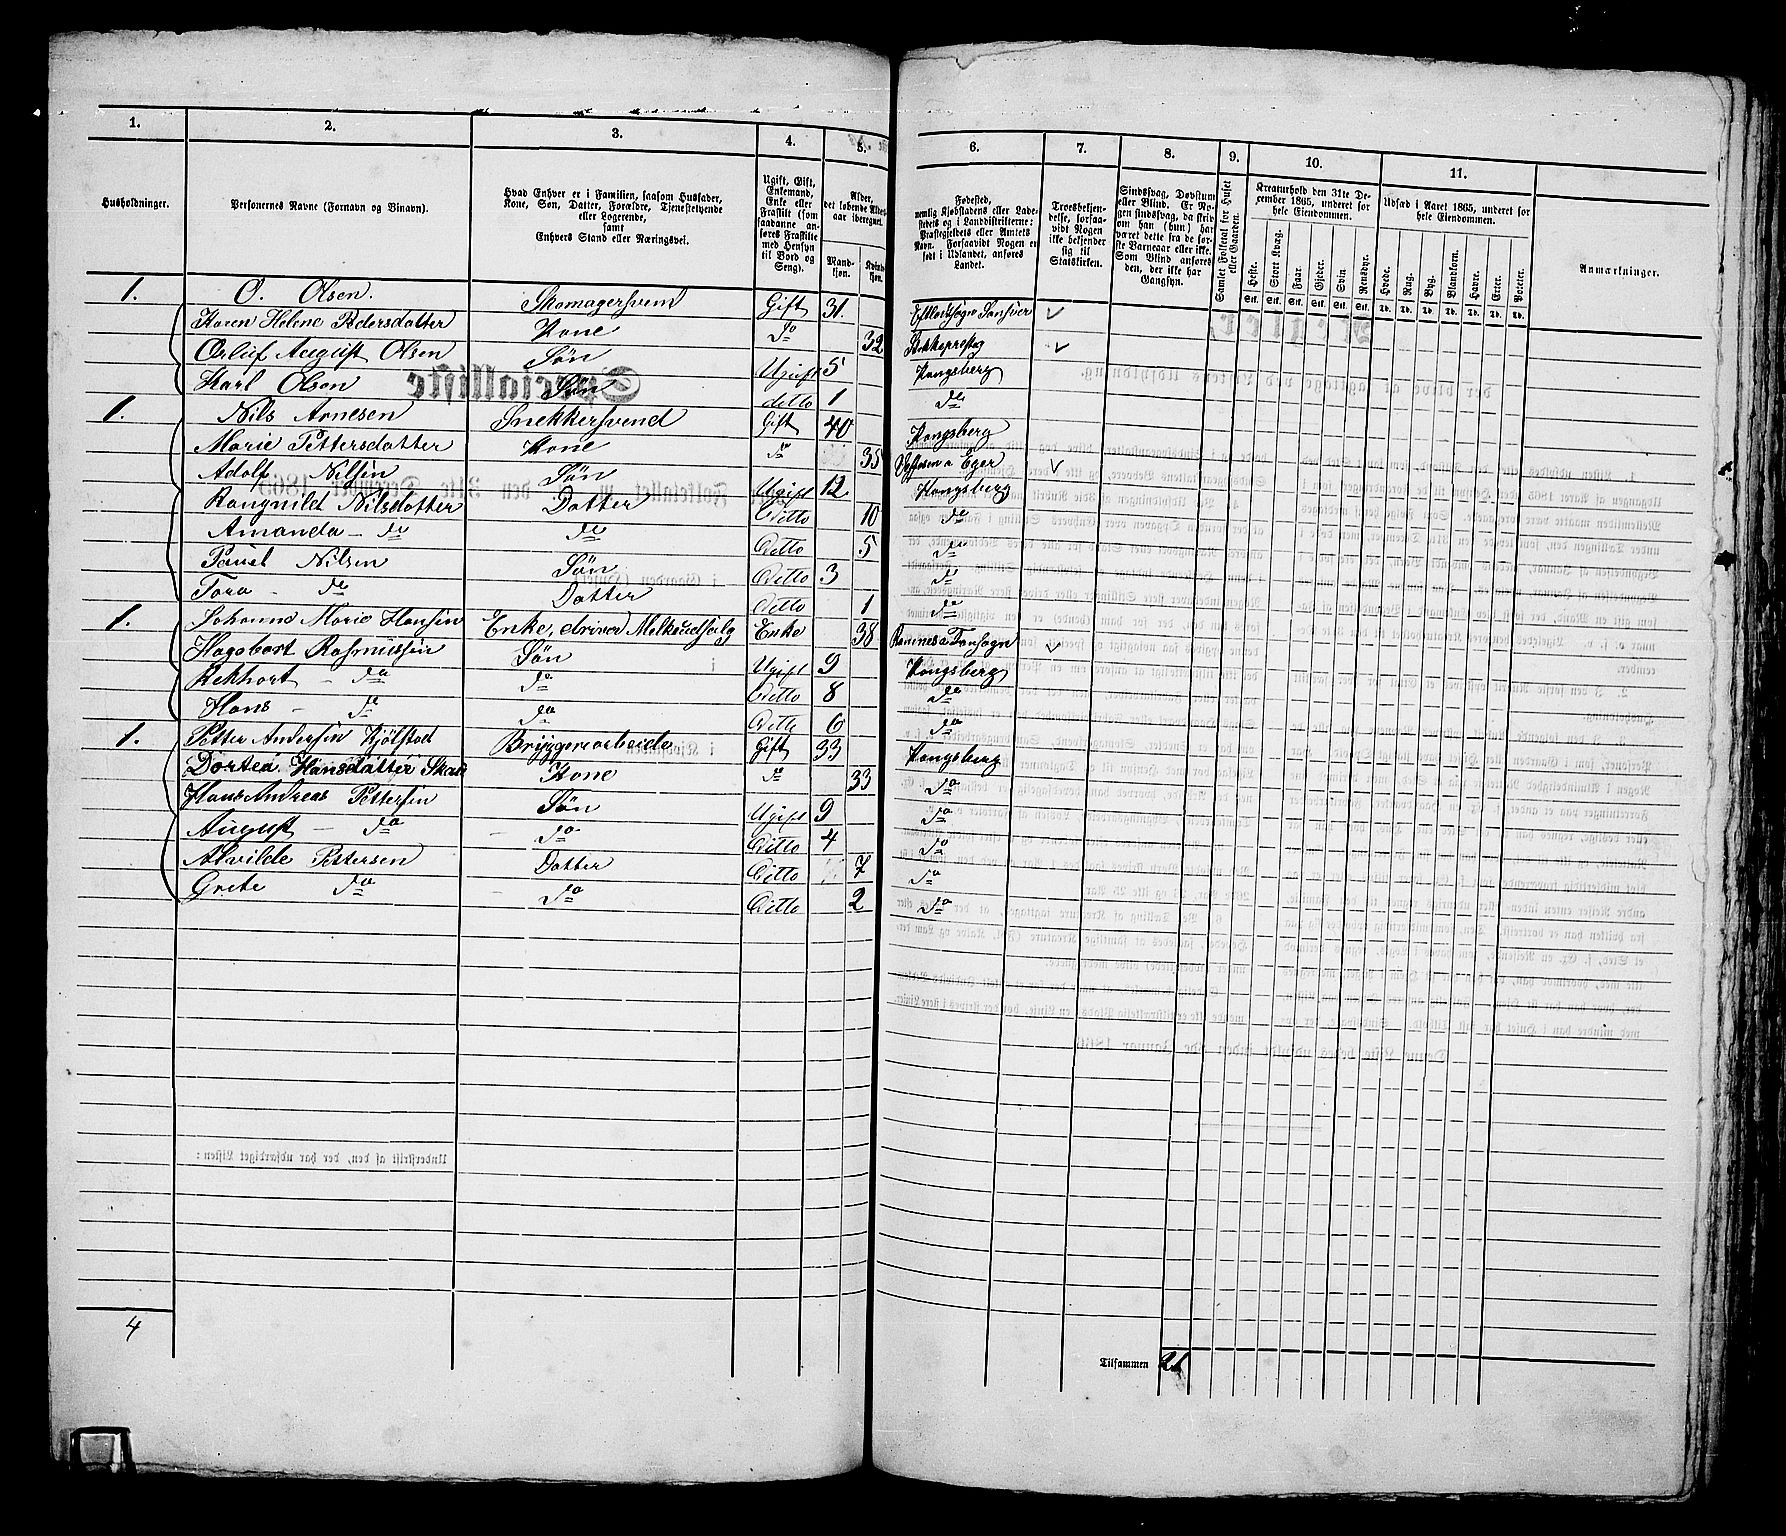 1. 2. 3. 4. 5. 6. 7. 8. 9. 10. 11.
Husholdninger.
Personernes Navne (Fornavn og Vinavn).
Hvad Enhver er i Familien, saasom Husfader,
Kone, Søn, Datter, Forældre, Tjenestetyende
eller Logerende,
samt
Enhvers Stand eller Næringsvei.
Ugift, Gift,
Enkemand,
Enke eller
Fraskilt (som
saadanne an-
føres Fraskilte
med Hensyn
til Bord og
Seng).
Alder,
det løbende Alders-
aar iberegnet.
Mand-
kjøn.
Kvinde-
kjøn.
Fødested,
nemlig Kjøbstadens eller Lade-
stedets og i Landdistrikterne:
Præstegjeldets eller Amtets
Navn. Forsaavidt Nogen er
født i Udlandet, anføres
Landet.
Troesbekjen-
delse, forsaa-
vidt Nogen
ikke bekjender
sig til
Statskirken.
Sindssvag, Døvstum
eller Blind. Er No-
gen sindssvag, da skriv
om han (hun) har
været dette fra de før-
ste Barneaar eller ikke.
Som Blind anføres
den, der ikke har
Gangsyn.
Samlet Folketal for Huset
eller Gaarden.
Kreaturhold den 31te De-
cember 1865, underet for
hele Eiendommen.
Heste. Stort Kvæg. Faar. Gjeder. Svin Rensdyr.
Stk. Stk. Stk. Stk. Stk. Stk.
Udsæd i Aaret 1865, underet for
hele Eiendommen.
Hvede. Rug. Byg. Blandkorn. Havre. Erter. Poteter.
Td. Td. Td. Td. Td. Td. Td.
Anmærkninger.
1. O. Olsen. Skomagersvend Gift 31.
Karen Helene Pedersdatter Kone do 32
Oluf August Olsen Søn Ugift 5 Kongsberg
Karl Olsen Søn ditto 1 do
1. Nils Arnesen Snekkersvend Gift 40 Kongsberg
Marie Pettersdatter Kone do 35 Eger
Adolf Nilsen Søn Ugift 12 Kongsberg
Rangnild Nilsdatter Datter Ditto 10 do
Amanda - do do Ditto 5 do
Pauel Nilsen Søn Ditto 3 do
Tora - do Datter Ditto 1 do
1. Johanne Marie Hansen Enke, driver Melkeudsalg Enke 38 Ramnes
Hagsbart Rasmussen Søn Ugift 9 Kongsberg
Rekhart - do do Ditto 8 do
Hans - do do Ditto 6 do
1. Petter Andersen Kjølstad Bryggeriarbeide Gift 33 Kongsberg
Dortea Hansdatter Kone do 33 do
Hans Andreas Pettersen Søn Ugift 9 do
August - do - do Ditto 4 do
Alvilde Pettersen Datter Ditto 7 do
Grete do - do Ditto 2 do
4
Tilsammen 21